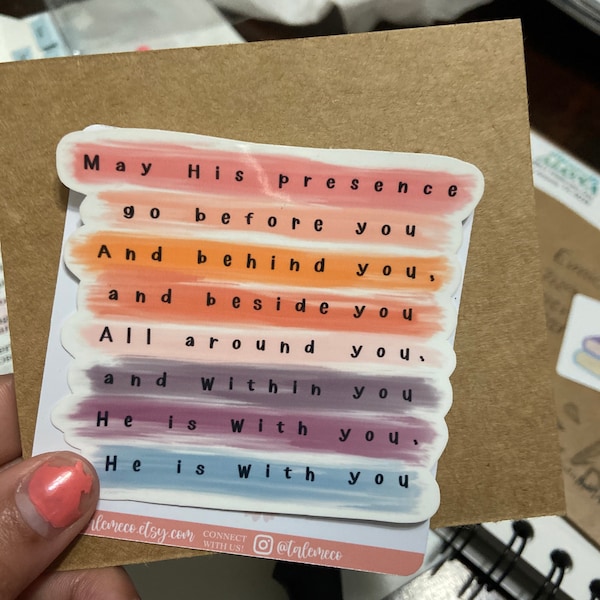 May His presence
go before you
And behind you,
and beside you
All around you,
and Within you
He is With you,
He is With you
talemeco.etsy.com
CONNECT
WITH US!
@talemeco